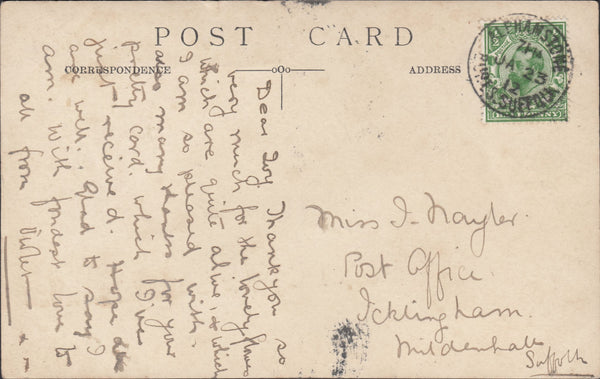 POST CARD
CORRESPONDENCE
ADDRESS
Dear Ivy. Thank you so
very much for the lovely flowers
which are quite alive, & which
I am so pleased with.
also many thanks for your
pretty card. which I've
just received. Hope all
are well. glad to say I
am. With fondest love to
all from Violet
Miss I. Nayler.
Post Office
Icklingham.
Mildenhall
Suffolk
JA 23
12
SUFFOLK